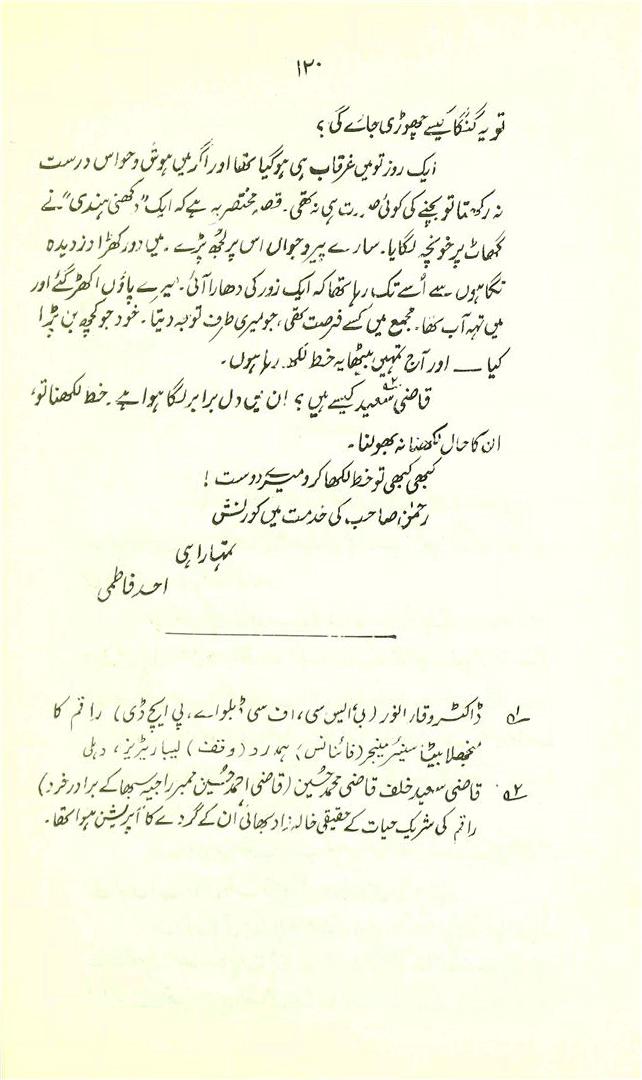 ۱۲۰
تو یہ گنگا کیسے چھوڑی جائے گی؟
ایک روز تو میں غرقاب ہی ہو گیا تھا اور اگر میں ہوش و حواس درست
نہ رکھتا تو بچنے کی کوئی صورت ہی نہ تھی۔ قصہ مختصر یہ ہے کہ ایک "دکھنی ہندی" نے
گھاٹ پر خونچہ لگایا۔ سارے پیر و جواں اس پر لُجھ پڑے۔ میں دور کھڑا دزدیدہ
نگاہوں سے اُسے تک رہا تھا کہ ایک زور کی دھارا آئی۔ میرے پاؤں اکھڑ گئے اور
میں تہہ آب تھا۔ مجمع میں کسے فرصت تھی، جو میری طرف توجہ دیتا۔ خود جو کچھ بن پڑا
کیا — اور آج تمہیں بیٹھا یہ خط لکھ رہا ہوں۔
قاضی سعید۲ کیسے ہیں؟ ان میں دل برابر لگا ہوا ہے۔ خط لکھنا تو،
ان کا حال لکھنا نہ بھولنا۔
کبھی کبھی تو خط لکھا کرو میرے دوست!
رحمٰن صاحب کی خدمت میں کورنش
تمہارا ہی
احمد فاطمی
۱؎ ڈاکٹر وقار انور (بی ایس سی، اف سی ڈبلو اے، پی ایچ ڈی) راقم کا
منجھلا بیٹا سینئر مینجر (فائنانس) ہمدرد (وقف) لیبارٹیریز، دہلی
۲؎ قاضی سعید خلف قاضی محمد حسین (قاضی احمد حسین ممبر راجیہ سبھا کے برادر خرد)
راقم کی شریک حیات کے حقیقی خالہ زاد بھائی، ان کے گردے کا آپریشن ہوا تھا۔